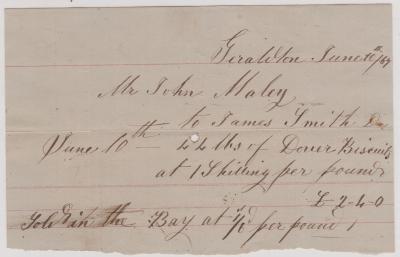 Geraldton June 10th/67
Mr John Maley
to James Smith Dr
June 10th 44 lbs of Dover Biscuits
at 1 Shilling per pound
£ 2-4-0
Sold in the Bay at 1/1 per pound